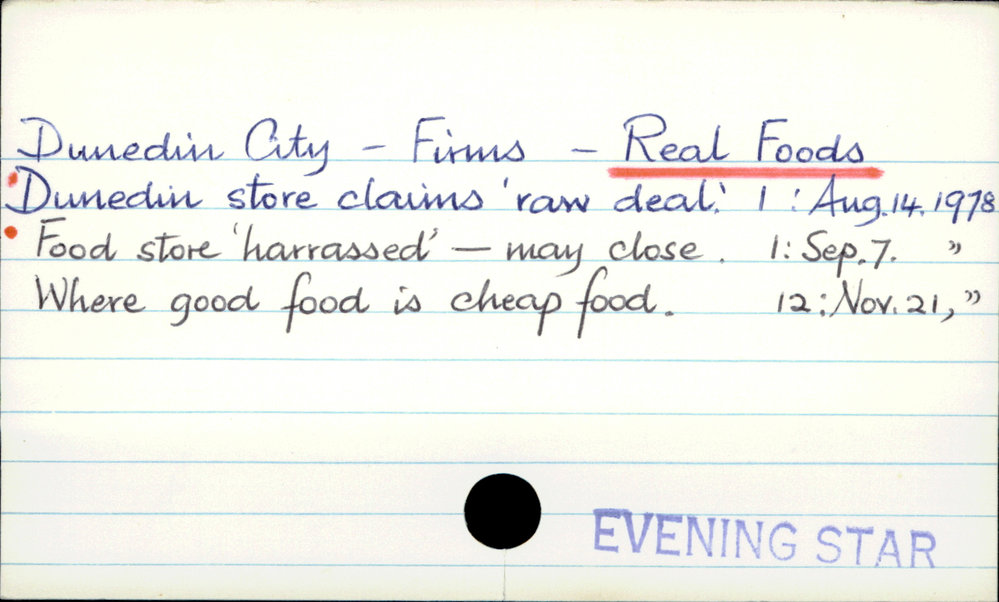 Dunedin City – Firms – Real Foods
Dunedin store claims 'raw deal'. 1 : Aug. 14. 1978
Food store 'harrassed' — may close. 1 : Sep. 7. "
Where good food is cheap food. 12 : Nov. 21, "
EVENING STAR